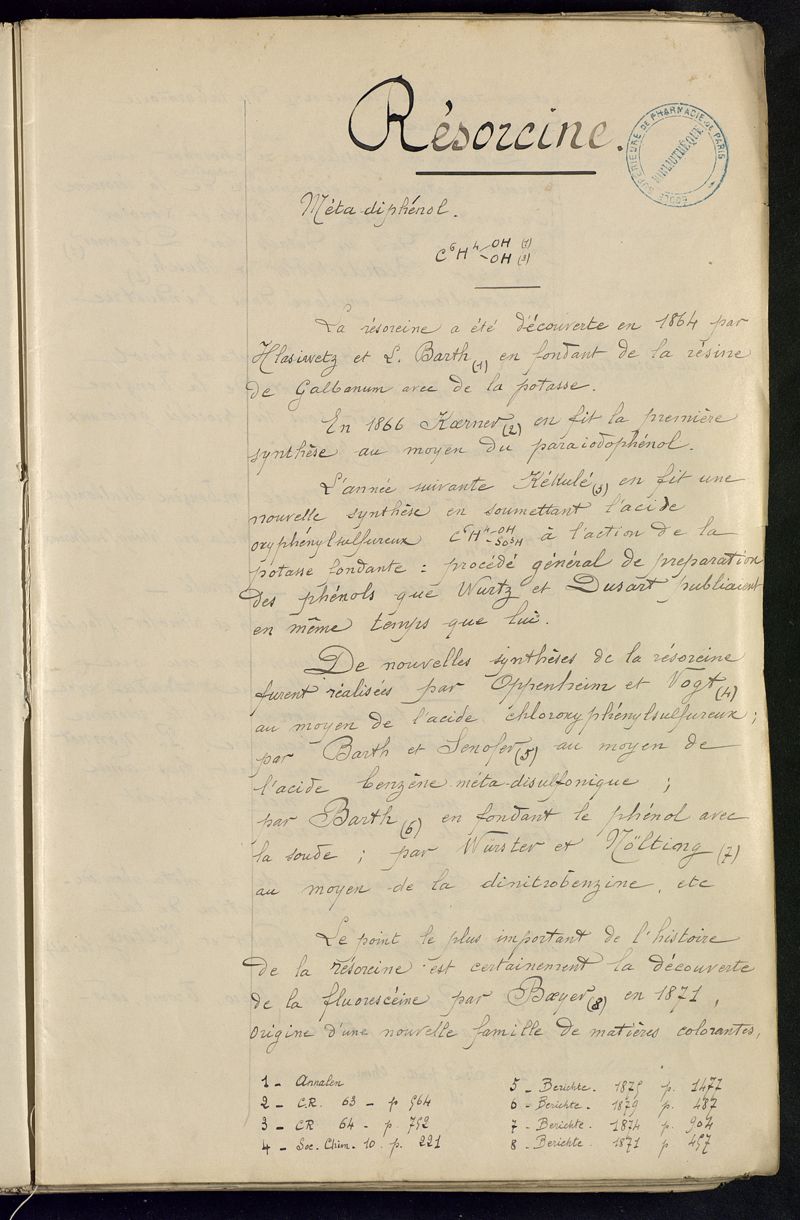 Résorcine.
ÉCOLE SUPÉRIEURE DE PHARMACIE DE PARIS
BIBLIOTHÈQUE
Méta-diphénol.
C⁶H⁴ OH (1)
OH (3)
La résorcine a été découverte en 1864 par
Hlasiwetz et L. Barth (1) en fondant de la résine
de Galbanum avec de la potasse.
En 1866 Kœrner (2) en fit la première
synthèse au moyen du paraiodophénol.
L'année suivante Kékulé (3) en fit une
nouvelle synthèse en soumettant l'acide
oxyphénylsulfureux C⁶H⁴-OH -SO³H à l'action de la
potasse fondante : procédé général de préparation
des phénols que Wurtz et Dusart publiaient
en même temps que lui.
De nouvelles synthèses de la résorcine
furent réalisées par Oppenheim et Vogt (4)
au moyen de l'acide chloroxyphénylsulfureux ;
par Barth et Senofer (5) au moyen de
l'acide benzène-méta-disulfonique ;
par Barth (6) en fondant le phénol avec
la soude ; par Würster et Nölting (7)
au moyen de la dinitrobenzine, etc
Le point le plus important de l'histoire
de la résorcine est certainement la découverte
de la fluorescéine par Bæyer (8) en 1871,
origine d'une nouvelle famille de matières colorantes,
1 - Annalen
2 - C.R. 63 - p 564
3 - CR 64 - p. 752
4 - Soc. Chim. 10. p. 221
5 - Berichte. 1875 p. 1477
6 - Berichte. 1879 p. 487
7 - Berichte. 1874 p. 904
8 - Berichte. 1871 p 457